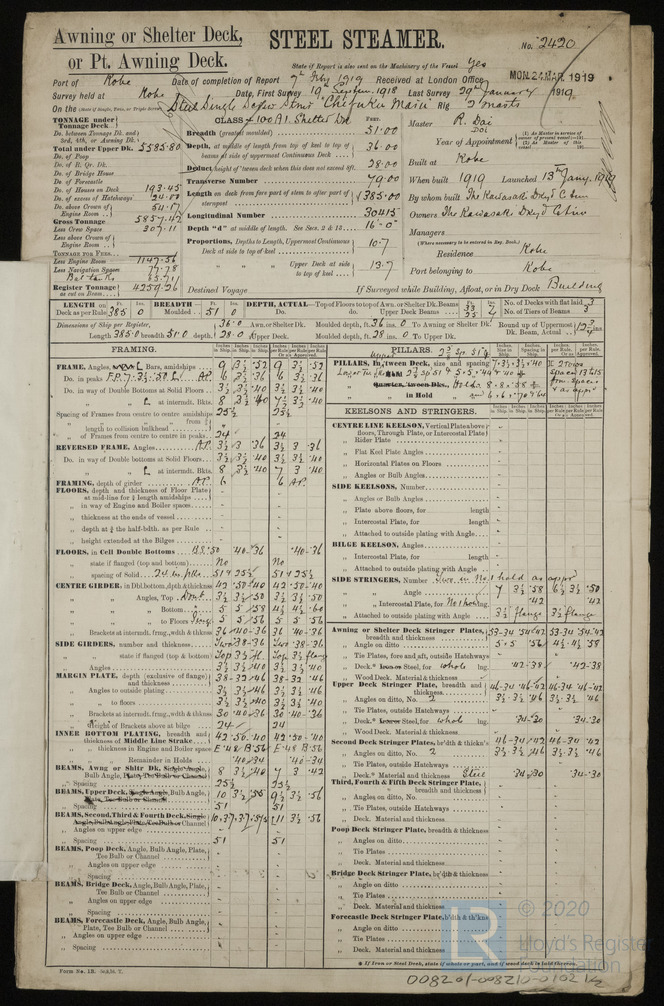 Awning or Shelter Deck,
or Pt. Awning Deck.
STEEL STEAMER.
No. 2420
State of Report is also sent on the Machinery of the Vessel Yes
Port of Kobe Date of completion of Report 7th Feby 1919 Received at London Office MON. 24 MAR. 1919
Survey held at Kobe Date, First Survey 19th Septem. 1918 Last Survey 29th January 1919
On the (State if Single, Twin, or Triple Screw) Steel Single Screw Stmr "Chifuku Maru" Rig 2 masts
TONNAGE under Tonnage Deck
Do. between Tonnage Dk. and 3rd, 4th, or Awning Dk.
Total under Upper Dk. 5585.80
Do. of Poop
Do. of R. Qr. Dk.
Do. of Bridge House
Do. of Forecastle
Do. of Houses on Deck 193.45
Do. of excess of Hatchways 24.00
Do. above Crown of Engine Room 54.17
Gross Tonnage 5857.42
Less Crew Space 307.11
Less above Crown of Engine Room
TONNAGE FOR FEES
Less Engine Room 1147.56
Less Navigation Spaces 77.78
Register Tonnage as cut on Beam 4259.26
CLASS 100 A1. Shelter Dk
FEET.
Breadth (greatest moulded) 51.00
Depth, at middle of length from top of keel to top of beams at side of uppermost Continuous Deck 36.00
Deduct height of 'tween deck when this does not exceed 8ft. 28.00
Transverse Number 79.00
Length on deck from fore part of stem to after part of sternpost 385.00
Longitudinal Number 30415
Depth "d" at middle of length. See Secs. 2 & 13 16-0
Proportions, Depths to Length, Uppermost Continuous Deck at side to top of keel 10.7
" " Upper Deck at side to top of keel 13.7
Destined Voyage
If Surveyed while Building, Afloat, or in Dry Dock Building
Master R. Doi
Year of Appointment
Built at Kobe
When built 1919 Launched 13th Jany. 1919
By whom built The Kawasaki Dkyd Co Ltd
Owners The Kawasaki Dkyd Co Ltd
Managers
(Where necessary to be entered in Reg. Book.)
Residence Kobe
Port belonging to Kobe
LENGTH on Deck as per Rule 385 0
BREADTH— Moulded 51 0
DEPTH, ACTUAL—Top of Floors to top of Awn. or Shelter Dk. Beams
Do. do. Upper Deck Beams
No. of Decks with flat laid 3
No. of Tiers of Beams 3
Dimensions of Ship per Register, length 385.0 breadth 51.0 depth 36.0 Awn. or Shelter Dk. 28.0 Upper Deck.
Moulded depth, ft. 36 ins. 0 To Awning or Shelter Dk.
Moulded depth, ft. 28 ins. 0 To Upper Dk.
Round up of Uppermost Dk. Beam, Actual
FRAMING.
FRAME, Angles, Bars, amidships 9 3½ .52 9 3½ .52
Do. in peaks
Do. in way of Double Bottoms at Solid Floors
" " at intermdt. Bkts.
Spacing of Frames from centre to centre amidships 25½ 25½
" " from ⅕ length to collision bulkhead
" of Frames from centre to centre in peaks 24 24
REVERSED FRAME, Angles A.P. 3½ 3 .36 3½ 3 .36
Do. in way of Double Bottoms at Solid Floors 3½ 3½ .40 3½ 3½ .40
" " at intermdt. Bkts. 8 3½ .40 7 3 .40
FRAMING, depth of girder A.P. 6 6 A.P.
FLOORS, depth and thickness of Floor Plate at mid-line for ½ length amidships
" in way of Engine and Boiler spaces
" thickness at the ends of vessel
" depth at ¾ the half-bdth. as per Rule
" height extended at the Bilges
FLOORS, in Cell Double Bottoms B.S. 50 .40-.36 .40-.36
" state if flanged (top and bottom) No No
" spacing of Solid 24 in pks 51 & 25½ 51 & 25½
CENTRE GIRDER, in Dbl. bottom, dpth & thickness 42 .50-.40 42 .50-.40
" Angles, Top 3½ 3½ .50 3½ 3½ .50
" " Bottom 5 5 .58 4½ 4½ .60
" " to Floors 5 5 .56 5 5 .56
" Brackets at intermdt. frmg., wdth & thknss 36 .40-.36 36 .40-.36
SIDE GIRDERS, number and thickness Two .38-.36 Two .38-.36
" state if flanged (top & bottom)
" Angles 3½ 3½ .40 3½ 3½ .40
MARGIN PLATE, depth (exclusive of flange) and thickness 38-32 .46 38-32 .46
" Angles to outside plating 3½ 3½ .46 3½ 3½ .46
" " to floors 3½ 3½ .40 3½ 3½ .40
" Brackets at intermdt. frmg., wdth & thknss 30 .40-.36 30 .40-.36
" Height of Brackets above bilge 24 24
INNER BOTTOM PLATING, breadth and thickness of Middle Line Strake 42 .50-.40 42 .50-.40
" thickness in Engine and Boiler space E .48 B .56 E .48 B .56
" Remainder in Holds .40-.34 .40-.34
BEAMS, Awng or Shltr Dk, Single Angle, Bulb Angle, Plate, Tee Bulb or Channel 8 3½ .40 7 3 .42
" Spacing 25½ 25½
BEAMS, Upper Deck, Single Angle, Bulb Angle, Plate, Tee Bulb or Channel 10 3½ .55 9½ 3½ .56
" Spacing 51 51
BEAMS, Second, Third & Fourth Deck, Single Angle, Bulb Angle, Plate, Tee Bulb or Channel
" Angles on upper edge
" Spacing 51 51
BEAMS, Poop Deck, Angle, Bulb Angle, Plate, Tee Bulb or Channel
" Angles on upper edge
" Spacing
BEAMS, Bridge Deck, Angle, Bulb Angle, Plate, Tee Bulb or Channel
" Angles on upper edge
" Spacing
BEAMS, Forecastle Deck, Angle, Bulb Angle, Plate, Tee Bulb or Channel
" Angles on upper edge
" Spacing
Form No. 1B.
PILLARS.
PILLARS, In 'tween Deck, size and spacing
" Quarter, 'tween Dks.
" in Hold
KEELSONS AND STRINGERS.
CENTRE LINE KEELSON, Vertical Plate above floors, Through Plate, or Intercostal Plate
" Rider Plate
" Flat Keel Plate Angles
" Horizontal Plates on Floors
" Angles or Bulb Angles
SIDE KEELSONS, Number
" Angles or Bulb Angles
" Plate above floors, for length
" Intercostal Plate, for length
" Attached to outside plating with Angle
BILGE KEELSON, Angles
" Intercostal Plate, for length
" Attached to outside plating with Angle
SIDE STRINGERS, Number
" Angle 7 3½ .58 6½ 3½ .50
" Intercostal Plate, for lng. .42 .42
" Attached to outside plating with Angle 3½ flange 3½ flange
Awning or Shelter Deck Stringer Plates, breadth and thickness 53-34 .54-.42 53-34 .54-.42
" Angle on ditto 5 5 .56 4½ 4½ .58
" Tie Plates, fore and aft, outside Hatchways
" Deck.* Iron or Steel, for whole lng. .42-.38 .42-.38
" Wood Deck. Material & thickness
Upper Deck Stringer Plate, breadth and thickness 46-34 .46-.42 46-34 .46-.42
" Angles on ditto, No. 2 3½ 3½ .46 3½ 3½ .46
" Tie Plates, outside Hatchways
" Deck.* Iron or Steel, for whole lng. .34-.20 .34-.30
" Wood Deck. Material & thickness
Second Deck Stringer Plates, br'dth & thickn's 46-34 .42 46-34 .42
" Angles on ditto, No. 2 3½ 3½ .46 3½ 3½ .46
" Tie Plates, outside Hatchways
" Deck.* Material and thickness Steel .34-.30 .34-.30
Third, Fourth & Fifth Deck Stringer Plate, breadth and thickness
" Angles on ditto, No.
" Tie Plates, outside Hatchways
" Deck. Material and thickness
Poop Deck Stringer Plate, breadth & thickness
" Angles on ditto
" Tie Plates
" Deck. Material and thickness
Bridge Deck Stringer Plate, br'dth & thickness
" Angle on ditto
" Tie Plates
" Deck. Material and thickness
Forecastle Deck Stringer Plate, b'dth & th'kns
" Angle on ditto
" Tie Plates
" Deck. Material and thickness
* If Iron or Steel Deck, state if whole or part, and if wood deck is laid thereon.
LR
© 2020
Lloyd's Register
Foundation